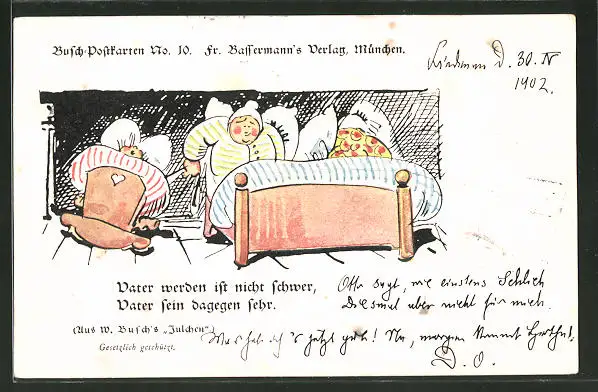 Busch-Postkarten No. 10. Fr. Bassermann's Verlag, München.
d. 30. IV
1902.
Vater werden ist nicht schwer,
Vater sein dagegen sehr.
(Aus W. Busch's „Julchen")
Gesetzlich geschützt.
Otto sagt, wie einstens Schlich
Diesmal aber nicht für mich.
Was hab ich's jetzt gut! Na, morgen kommt
D. O.